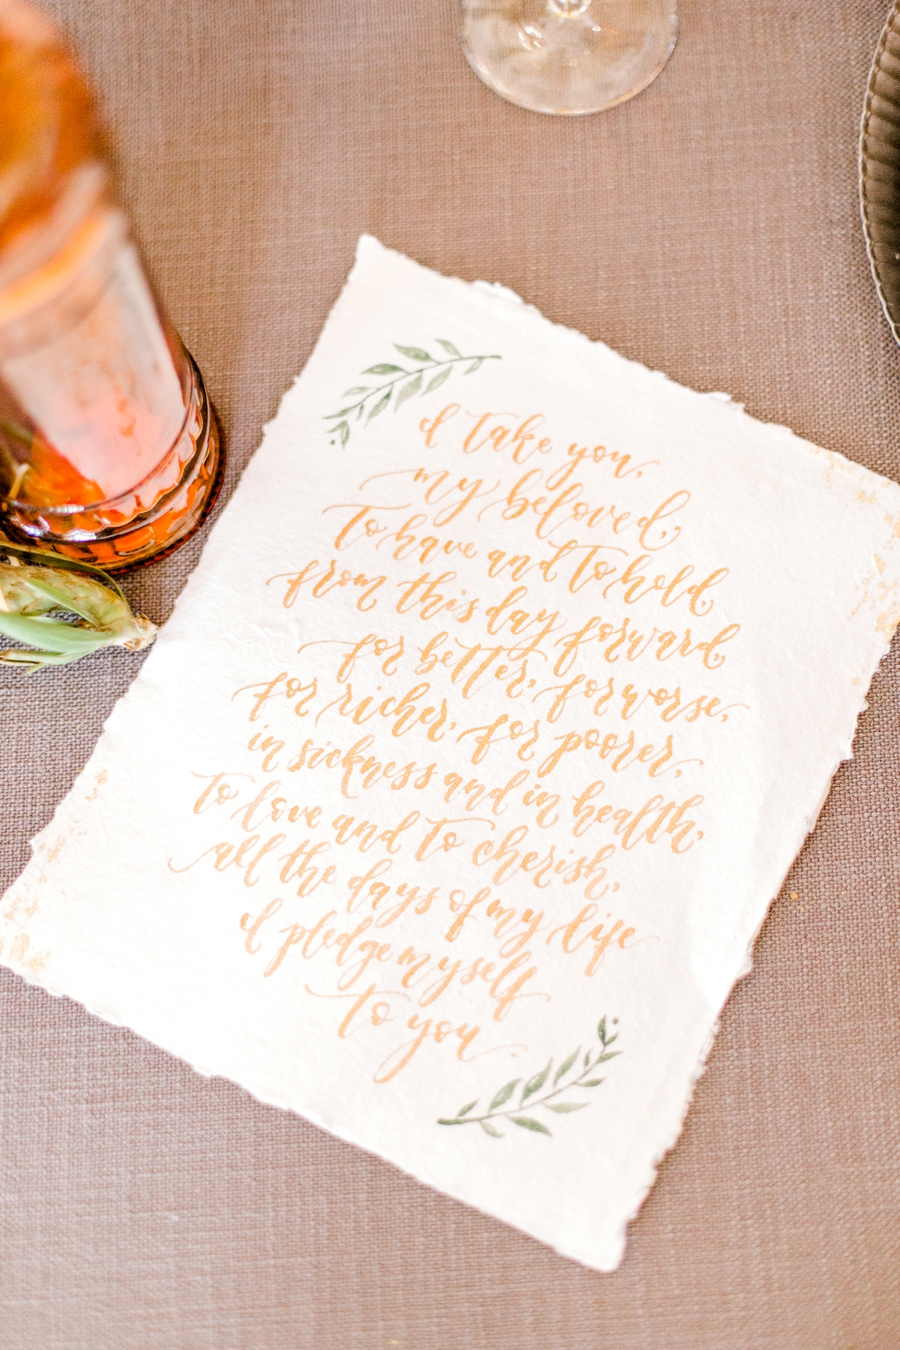 I take you,
my beloved,
To have and to hold
from this day forward
for better, for worse,
for richer, for poorer,
in sickness and in health,
to love and to cherish,
all the days of my life
I pledge myself
to you